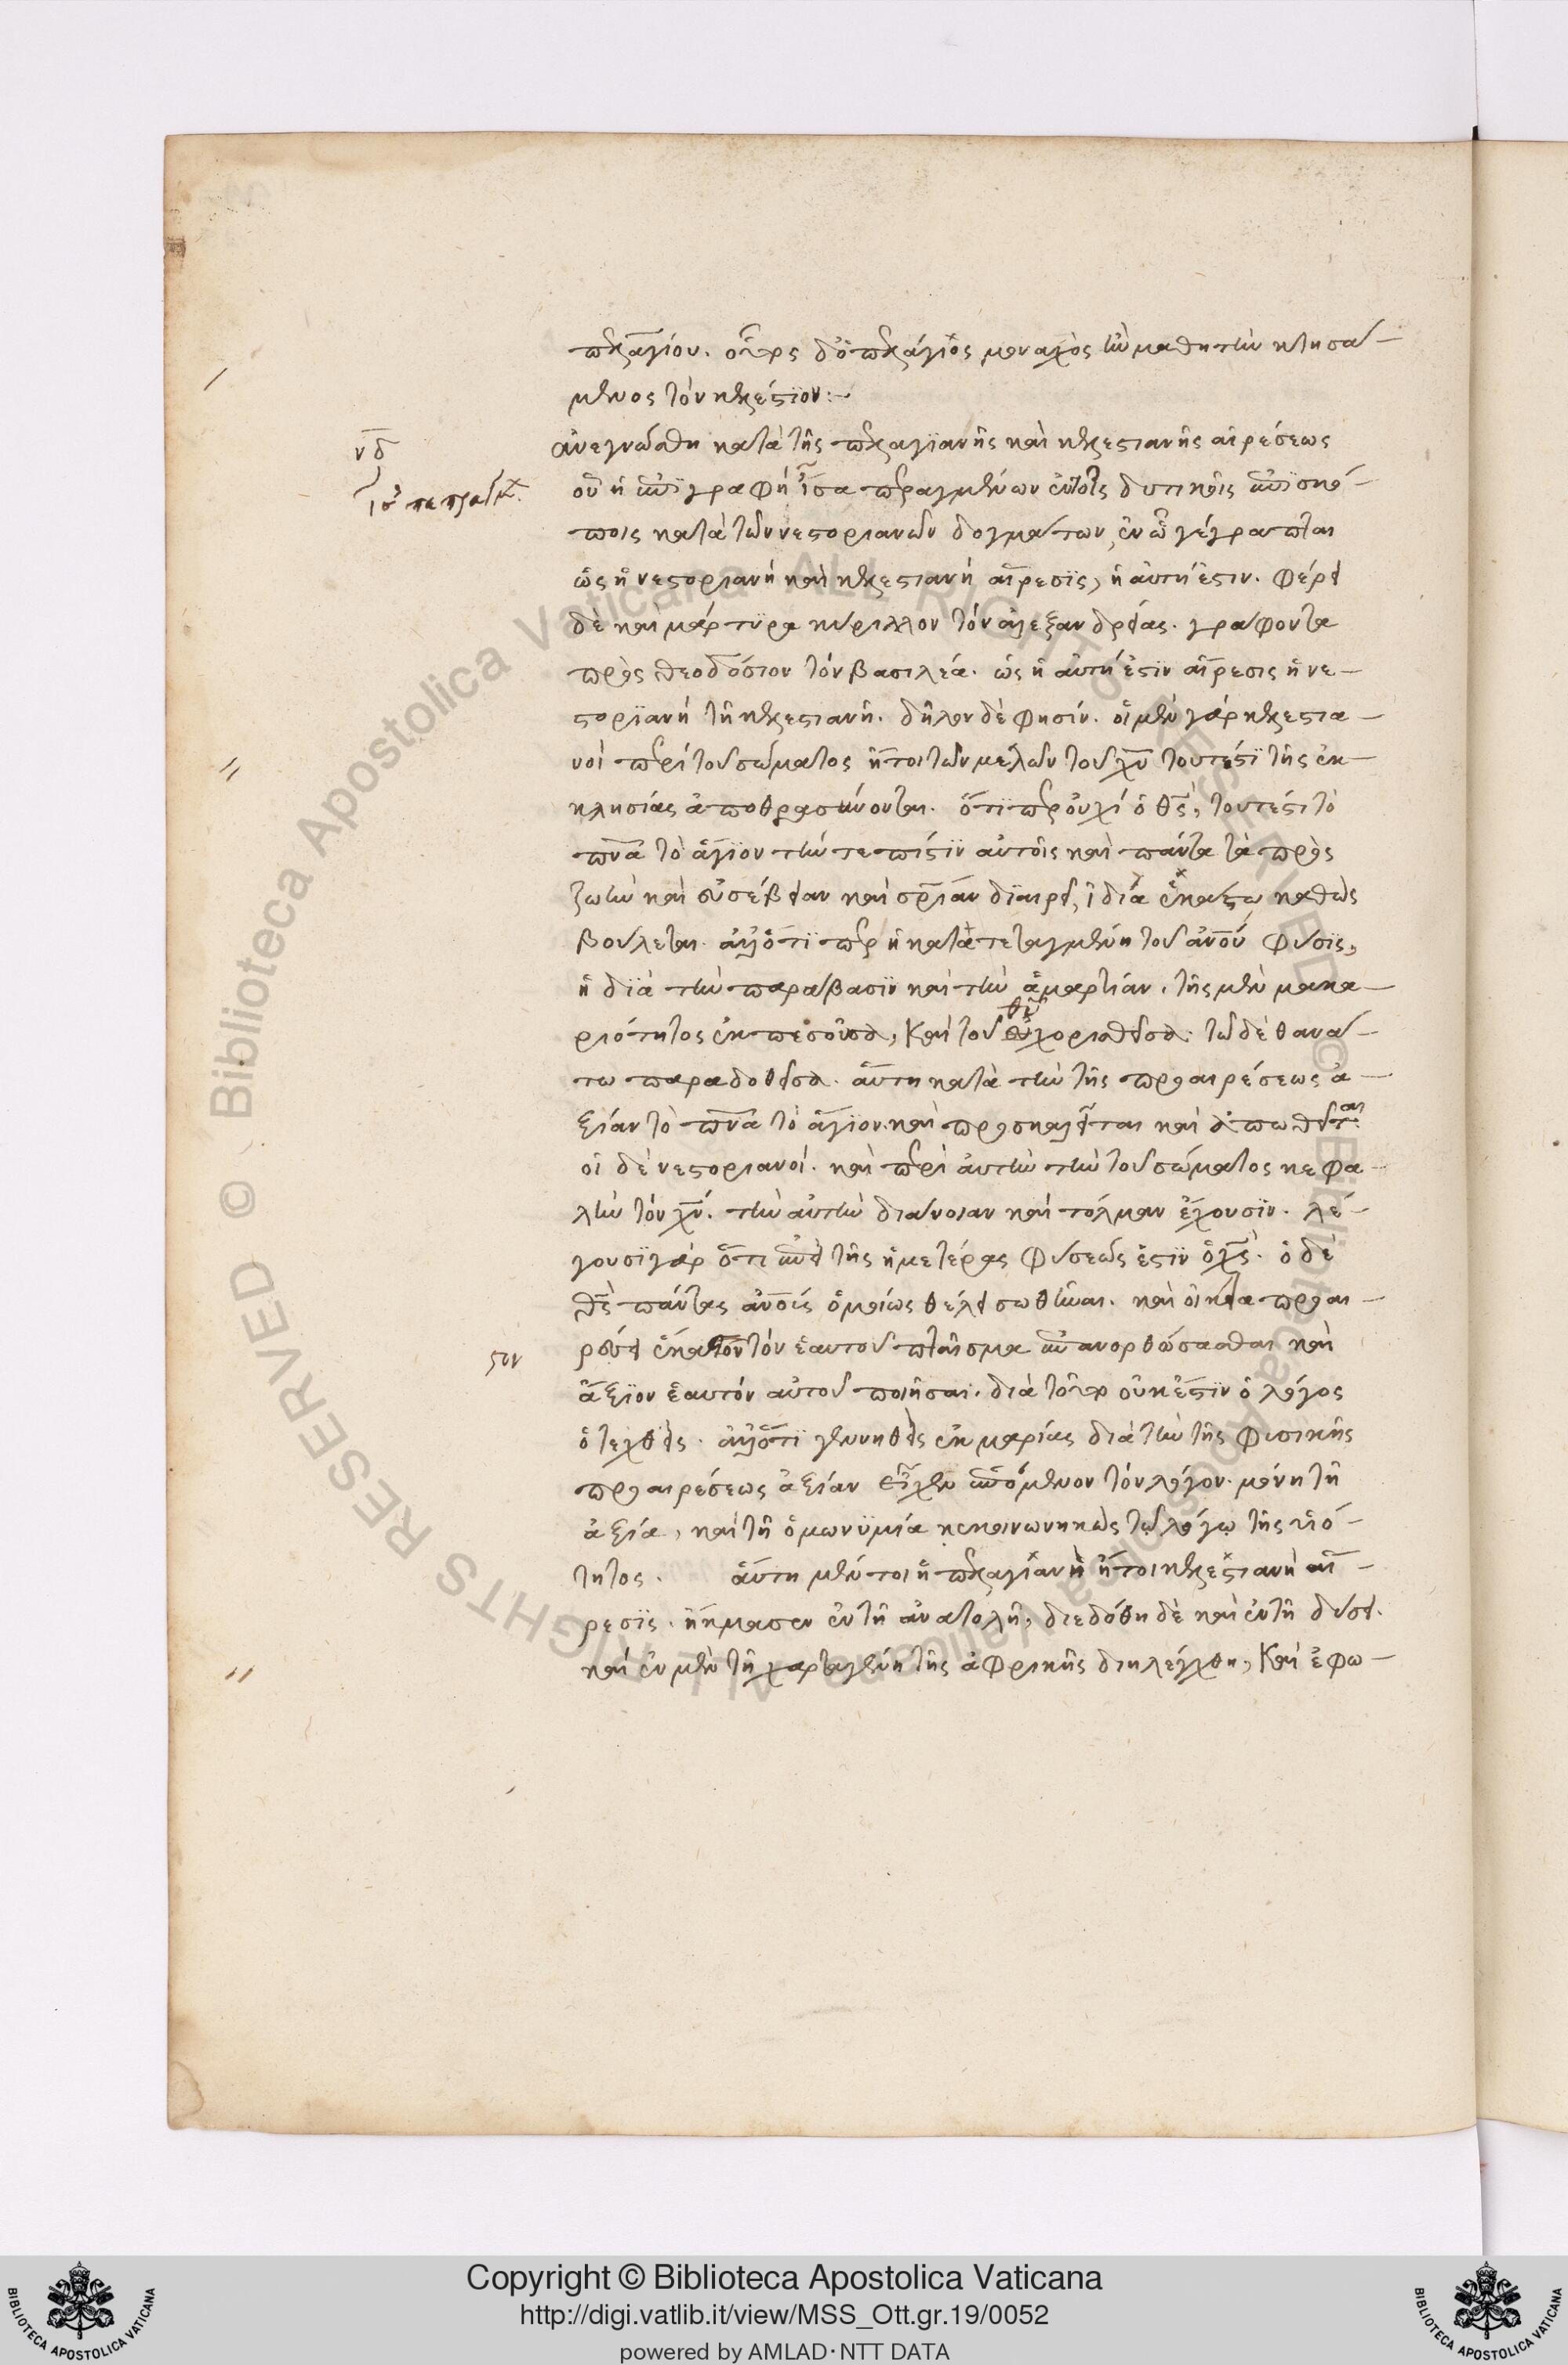 πελαγίου. οὗτος δὲ ὁ πελάγιος μοναχὸς ἦν μαθητὴν κτησά–
μενος τὸν κελέστιον:–
νδ
ἀνεγνώσθη κατὰ τῆς πελαγιανῆς καὶ κελεστιανῆς αἱρέσεως
οὗ ἡ ἐπιγραφὴ ἴσα πεπραγμένων ἐν τοῖς δυτικοῖς ἐπισκό–
ἴσ πεπραγμ.
ποις κατὰ τῶν νεστοριανῶν δογμάτων, ἐν ᾧ γέγραπται
ὡς ἡ νεστοριανὴ καὶ κελεστιανὴ αἵρεσις, ἡ αὐτή ἐστιν. φέρει
δὲ καὶ μάρτυρα κύριλλον τὸν ἀλεξανδρείας. γράφοντα
πρὸς θεοδόσιον τὸν βασιλέα. ὡς ἡ αὐτή ἐστιν αἵρεσις ἡ νε–
στοριανὴ τῇ κελεστιανῇ. δῆλον δὲ φησίν. οἱ μὲν γὰρ κελεστια–
νοὶ περὶ τοῦ σώματος ἤτοι τῶν μελῶν τοῦ χυ τουτέστι τῆς ἐκ–
κλησίας ἀποθρασύνονται. ὅτιπερ οὐχὶ ὁ θς, τουτέστι τὸ
πνα τὸ ἅγιον τήν τε πίστιν αὐτοῖς καὶ πάντα τὰ πρὸς
ζωὴν καὶ εὐσέβειαν καὶ σριαν διαιρεῖ, ἰδίᾳ ἑκάστῳ καθὼς
βούλεται. ἀλλ' ὅτιπερ ἡ κατατεταγμένη τοῦ ανου φύσις,
ἡ διὰ τὴν παράβασιν καὶ τὴν ἁμαρτίαν. τῆς μὲν μακα–
ριότητος ἐκπεσοῦσα, καὶ τοῦ θυ χορισθεῖσα. τῷ δὲ θανά–
τω παραδοθεῖσα. αὕτη κατὰ τὴν τῆς προαιρέσεως ἀ–
ξίαν τὸ πνα τὸ ἅγιον. καὶ προσκαλεῖται καὶ ἀπωθεῖται
οἱ δὲ νεστοριανοί. καὶ περὶ αὐτὴν τὴν τοῦ σώματος κεφα–
λὴν τὸν χν. τὴν αὐτὴν διάνοιαν καὶ τόλμαν ἔχουσιν. λέ–
γουσι γὰρ ὅτι ἐπεὶ τῆς ἡμετέρας φύσεώς ἐστιν ὁ χς. ὁ δὲ
θς πάντας ανους ὁμοίως θέλει σωθῆναι. καὶ οἰκείᾳ προαι–
ρέσει ἕκαστον τὸν ἑαυτοῦ πταῖσμα ἐπανορθώσασθαι καὶ
στον
ἄξιον ἑαυτὸν αὐτοῦ ποιῆσαι. διὰ τοῦτο οὐκ ἔστιν ὁ λόγος
ὁ τεχθείς. ἀλλ' ὅτι γεννηθεὶς ἐκ μαρίας διὰ τὴν τῆς φυσικῆς
προαιρέσεως ἀξίαν εἶχεν ἑπόμενον τὸν λόγον. μόνῃ τῇ
ἀξίᾳ, καὶ τῇ ὁμωνυμίᾳ κεκοινωνηκὼς τῷ λόγῳ τῆς υἱό–
τητος. αὕτη μέντοι ἡ πελαγιανὴ ἤτοι κελεστιανὴ αἵ–
ρεσις. ἤκμασεν ἐν τῇ ἀνατολῇ, διεδόθη δὲ καὶ ἐν τῇ δύσει.
καὶ ἐν μὲν τῇ χαρταγένῃ τῆς ἀφρικῆς διηλέγχθη, καὶ ἐφω–
Copyright © Biblioteca Apostolica Vaticana
http://digi.vatlib.it/view/MSS_Ott.gr.19/0052
powered by AMLAD·NTT DATA